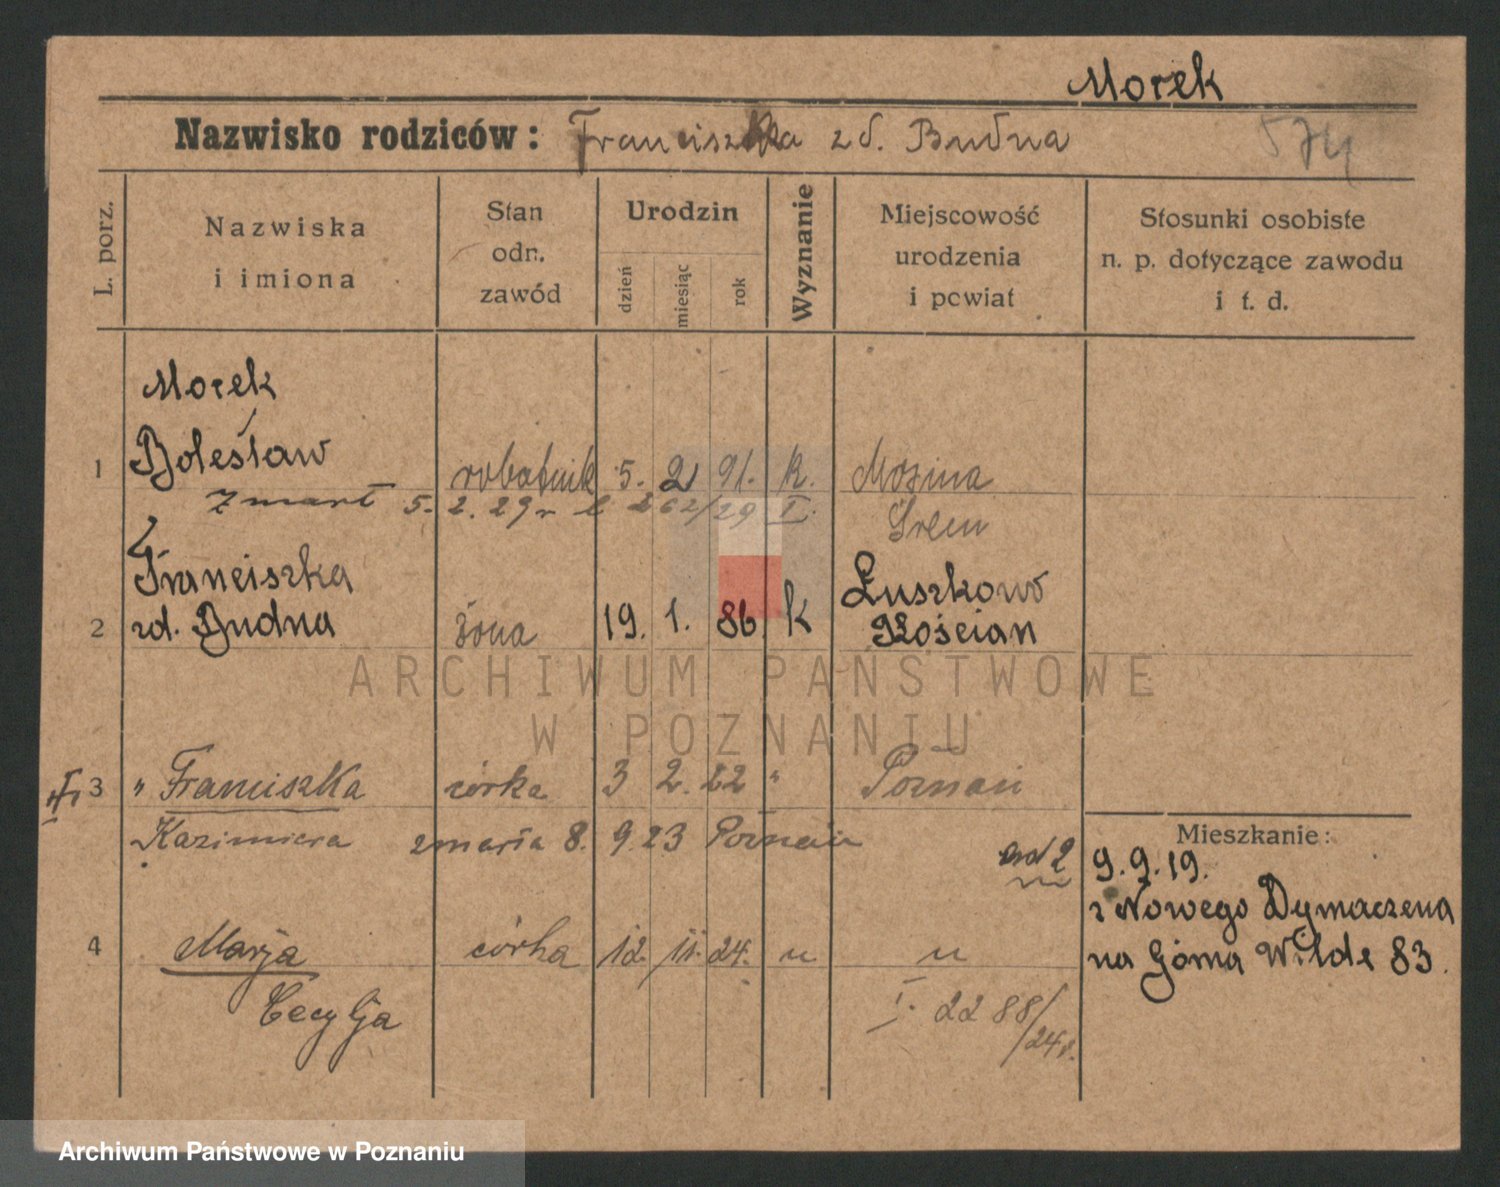 Morek
Nazwisko rodziców: Franciszka zd. Budna 574
L. porz.
Nazwiska
i imiona
Stan
odn.
zawód
Urodzin
dzień
miesiąc
rok
Wyznanie
Miejscowość
urodzenia
i powiat
Stosunki osobiste
n. p. dotyczące zawodu
i t. d.
Morek
1 Bolesław robotnik 5. 2 91. k. Mosina
zmarł 5. 2. 29 r 262/29 I. Śrem
Franciszka
2 zd. Budna żona 19. 1. 86 k Łuszkowo
Kościan
3 " Franciszka córka 3 2. 22 " Poznań
Kazimiera zmarła 8. 9. 23 Poznań
Mieszkanie:
9.9.19.
z Nowego Dymaczena
na Górna Wilde 83.
4 Marja córka 12. 11. 24. " "
Cecylja
I. 2288/24r.
ARCHIWUM PAŃSTWOWE
W POZNANIU
Archiwum Państwowe w Poznaniu